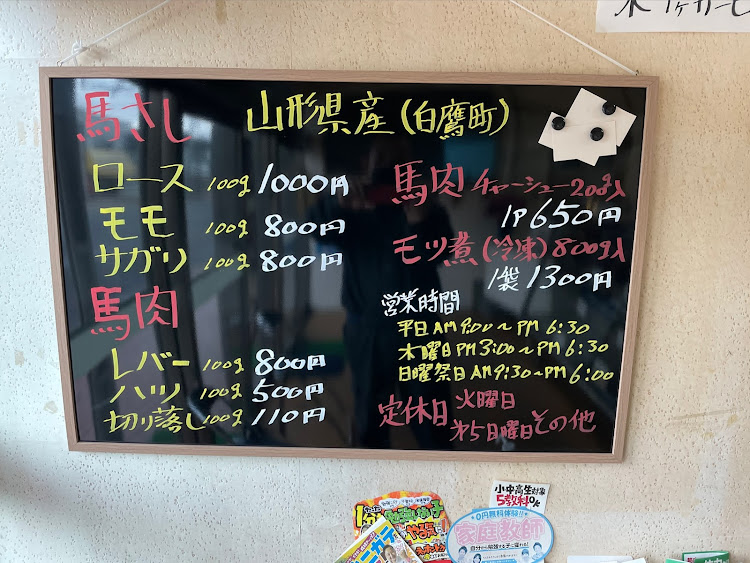 馬さし 山形県産(白鷹町)
ロース 100g 1000円
モモ 100g 800円
サガリ 100g 800円
馬肉
レバー 100g 800円
ハツ 100g 500円
切り落し 100g 110円
馬肉チャーシュー200g入
1P 650円
モツ煮(冷凍)800g入
1袋 1300円
営業時間
平日AM9:00〜PM6:30
木曜日PM3:00〜PM6:30
日曜祭日AM9:30〜PM6:00
定休日 火曜日
第5日曜日その他
小中高生対象
5教科OK
0円無料体験!!
家庭教師